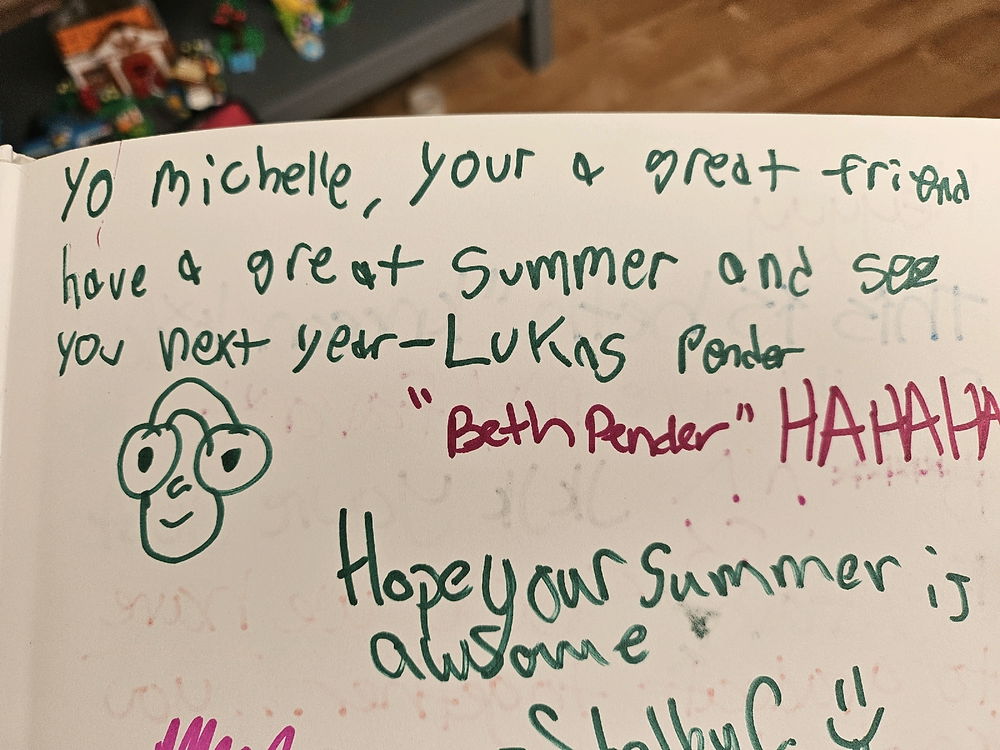 Yo michelle, your a great friend
have a great summer and see
you next year-Lukas Pender
"Beth Pender" HAHAHA
Hope your summer is
awsome
-Shelby C.